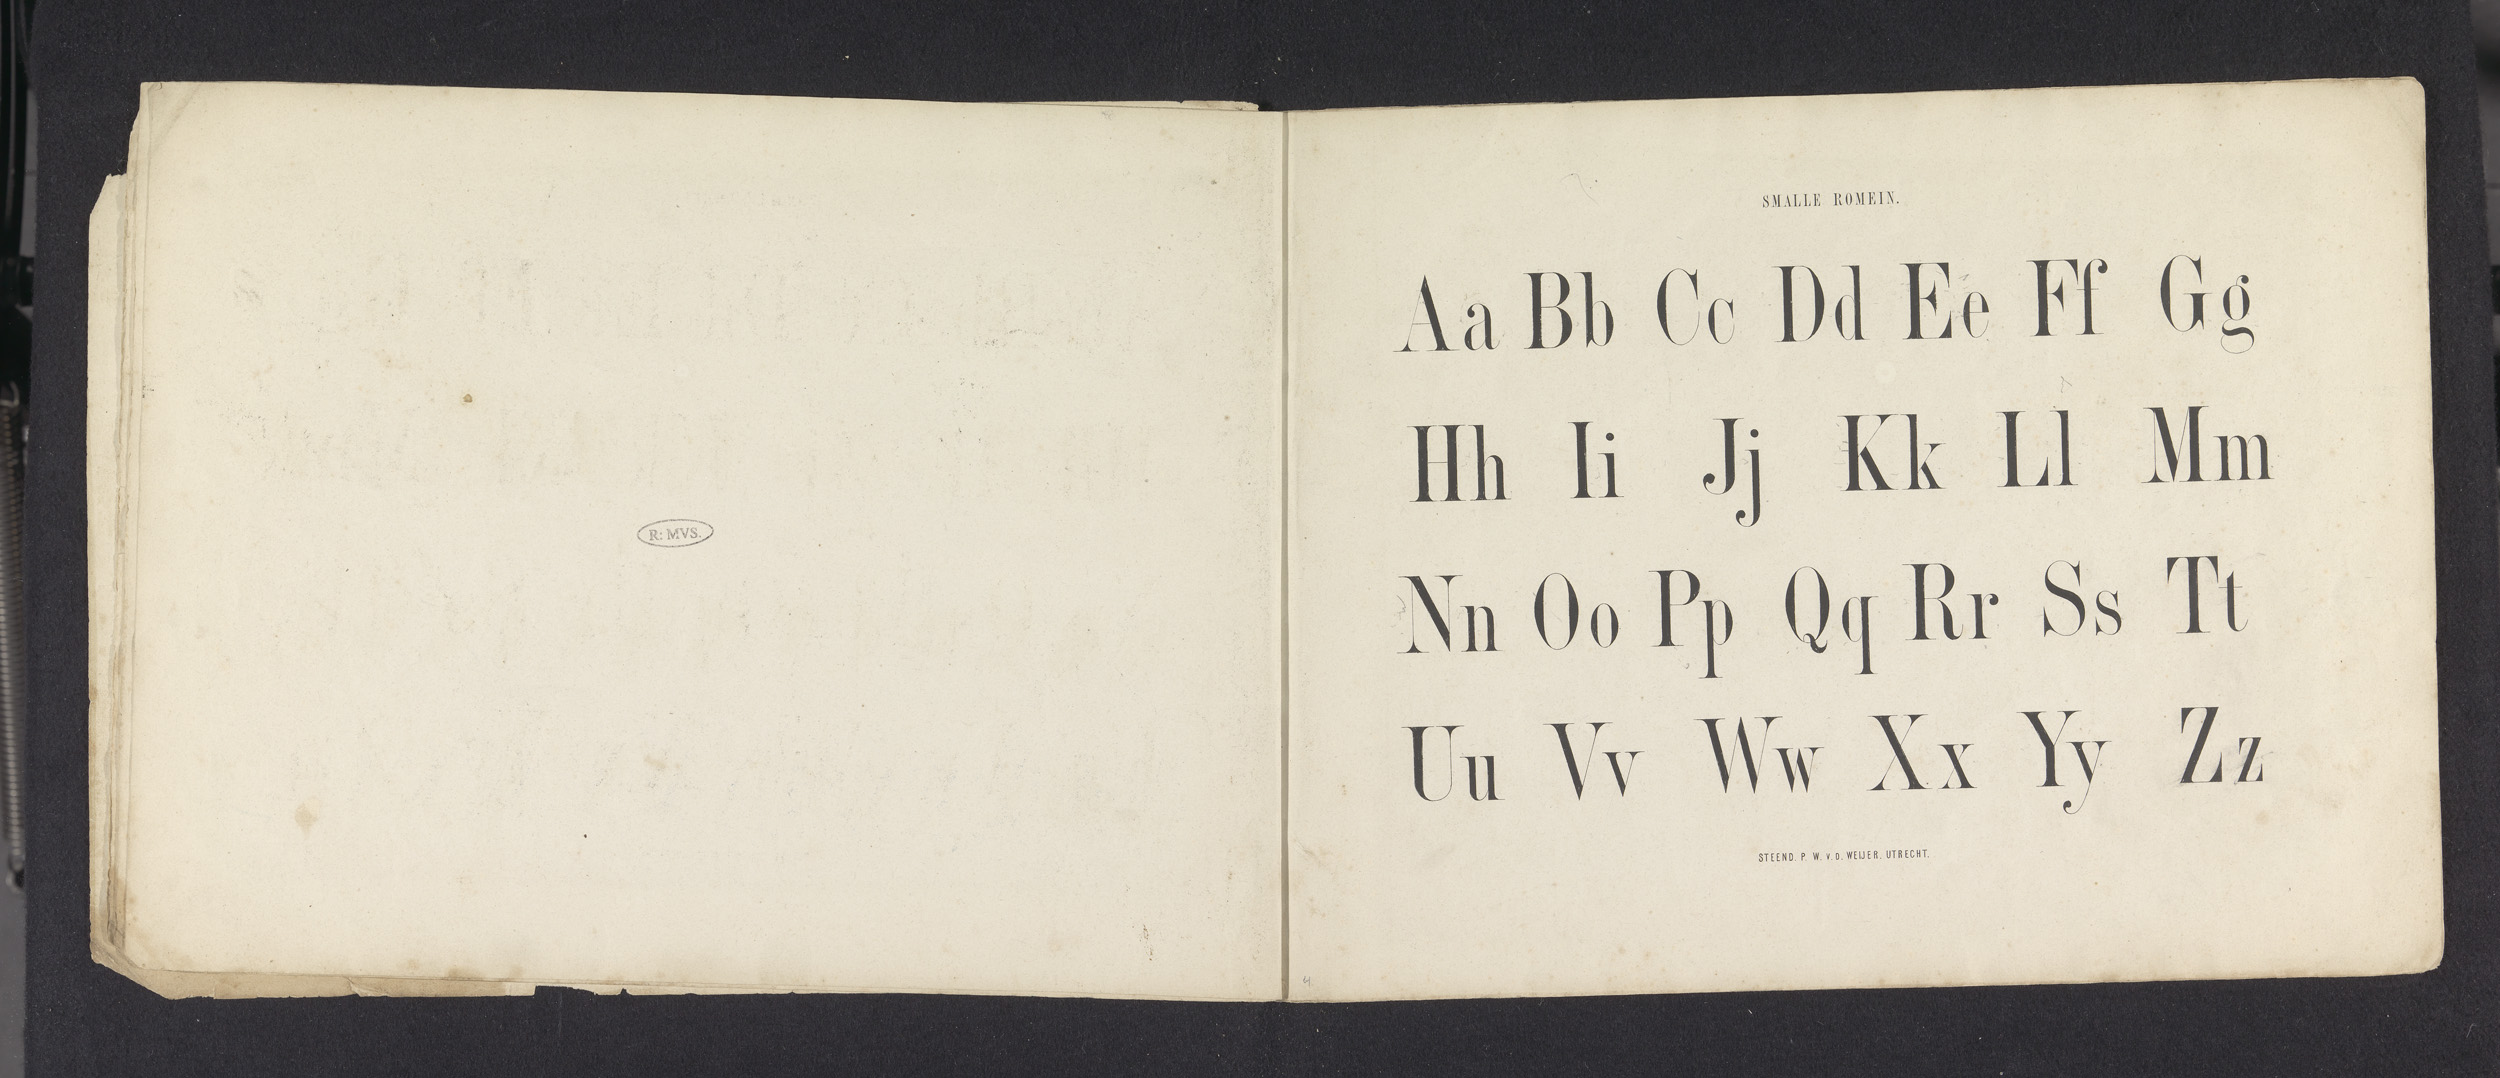 R: MVS.
SMALLE ROMEIN.
Aa Bb Cc Dd Ee Ff Gg
Hh Ii Jj Kk Ll Mm
Nn Oo Pp Qq Rr Ss Tt
Uu Vv Ww Xx Yy Zz
STEEND. P. W. V. D. WEIJER. UTRECHT.
4